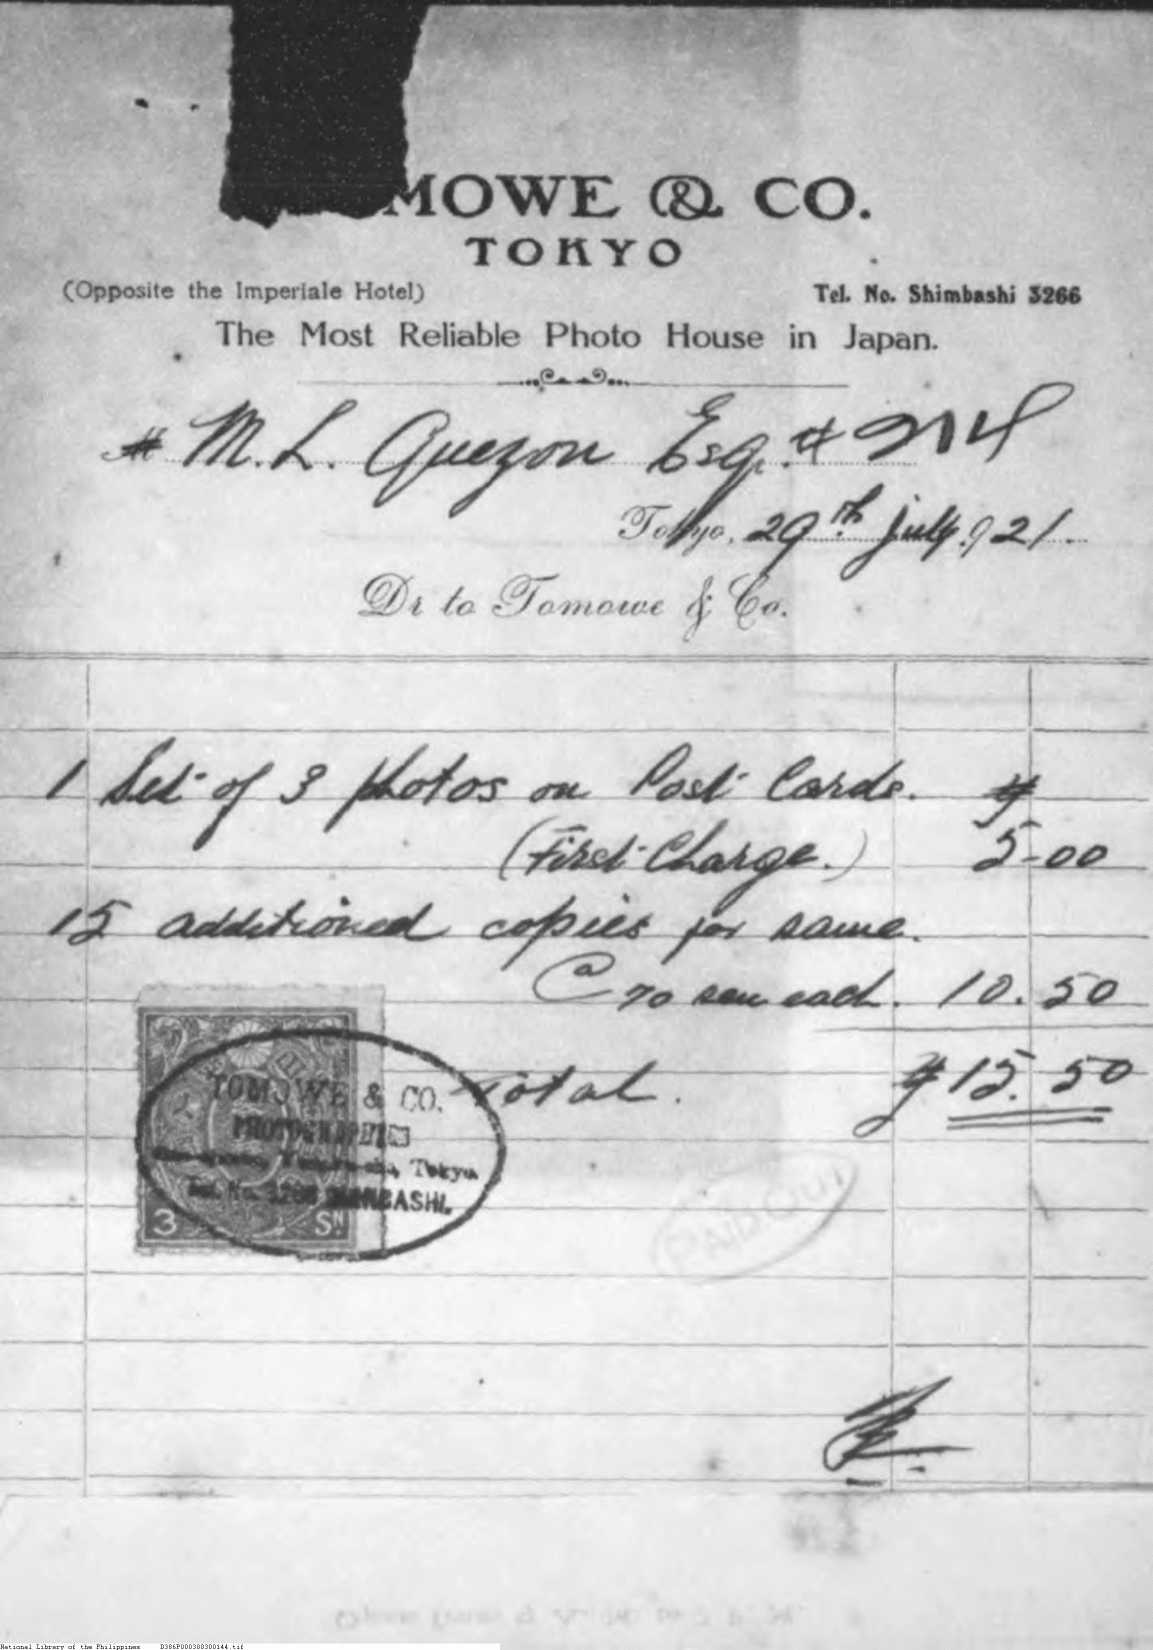 MOWE & CO.
TOKYO
(Opposite the Imperiale Hotel)
Tel. No. Shimbashi 3266
The Most Reliable Photo House in Japan.
# M. L. Quezon Esq. # 214
Tokyo, 29th July. 921.
Dr to Tomowe & Co.
1 Set of 3 photos on Post Cards. ¥
(First Charge.) 5-00
15 additioned copies for same.
@ 70 sen each. 10.50
Total. ¥ 15.50
TOMOWE & CO.
PHOTOGRAPHER
Tokyo
SHIMBASHI.
3 SN
PAID OUT
National Library of the Philippines D386P000300300144.tif